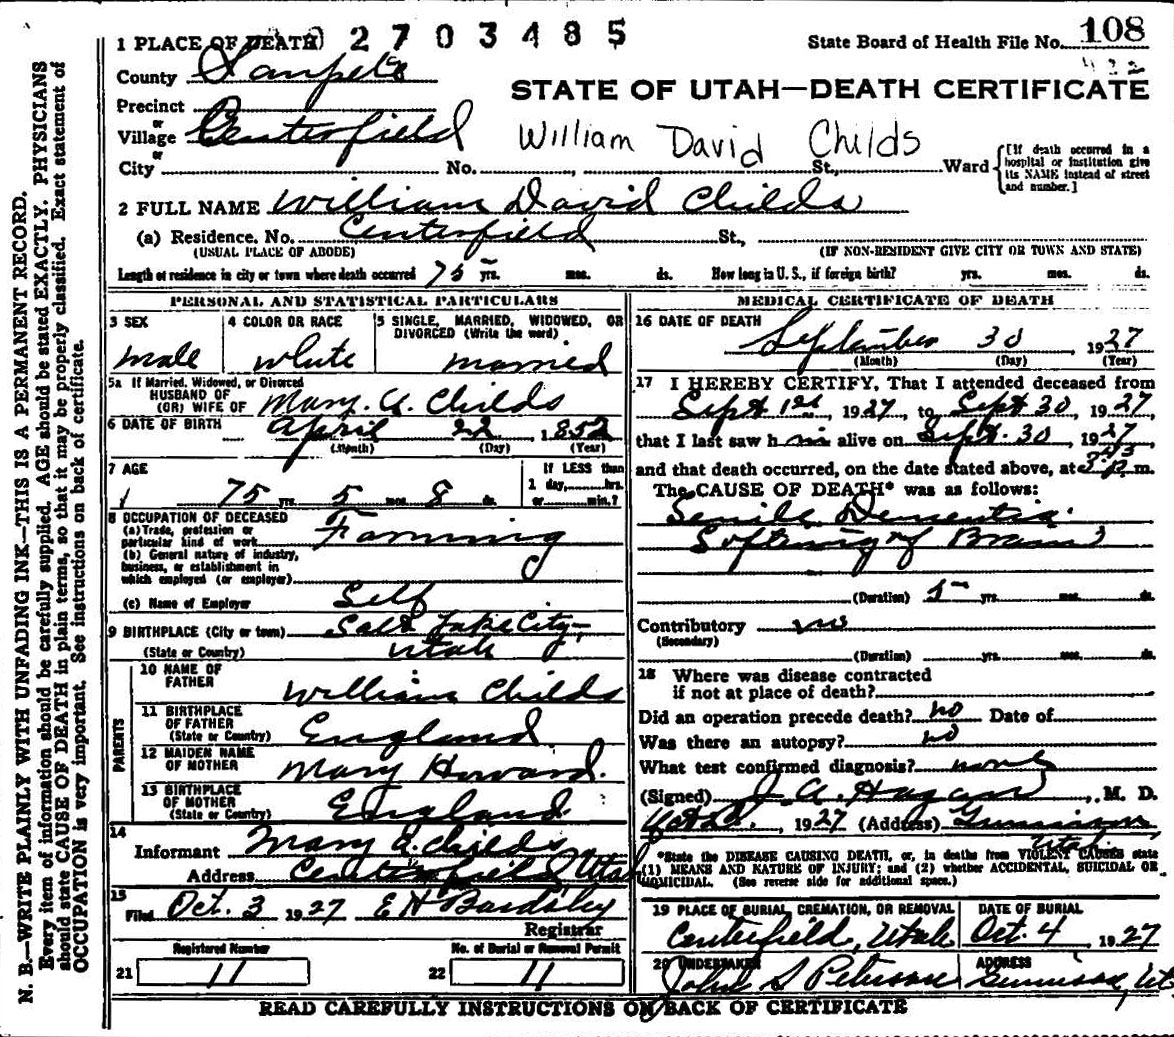 2703485
1 PLACE OF DEATH
State Board of Health File No. 108
432
County Sanpete
STATE OF UTAH—DEATH CERTIFICATE
Precinct
or
Village Centerfield
William David Childs
or
City No. , St., Ward
[If death occurred in a hospital or institution give its NAME instead of street and number.]
2 FULL NAME William David Childs
(a) Residence. No. Centerfield St.,
(USUAL PLACE OF ABODE) (IF NON-RESIDENT GIVE CITY OR TOWN AND STATE)
Length of residence in city or town where death occurred 75 yrs. mos. ds. How long in U. S., if foreign birth? yrs. mos. ds.
PERSONAL AND STATISTICAL PARTICULARS
3 SEX
male
4 COLOR OR RACE
white
5 SINGLE, MARRIED, WIDOWED, OR
DIVORCED (Write the word)
married
5a If Married, Widowed, or Divorced
HUSBAND OF
(OR) WIFE OF Mary. A. Childs
6 DATE OF BIRTH April 22 1852
(Month) (Day) (Year)
7 AGE
75 yrs. 5 mos. 8 ds.
If LESS than
1 day, hrs.
or min.?
8 OCCUPATION OF DECEASED
(a) Trade, profession or
particular kind of work Farming
(b) General nature of industry,
business, or establishment in
which employed (or employer)
(c) Name of Employer Self
9 BIRTHPLACE (City or town) Salt Lake City,
(State or Country) Utah
PARENTS
10 NAME OF
FATHER William Childs
11 BIRTHPLACE
OF FATHER
(State or Country) England
12 MAIDEN NAME
OF MOTHER Mary Howard.
13 BIRTHPLACE
OF MOTHER
(State or Country) England
14
Informant Mary A. Childs
Address Centerfield Utah
15
Filed Oct. 3 1927 E H Bardsley
Registrar
Registered Number No. of Burial or Removal Permit
21 11 22 11
MEDICAL CERTIFICATE OF DEATH
16 DATE OF DEATH
September 30 1927
(Month) (Day) (Year)
17 I HEREBY CERTIFY, That I attended deceased from
Sept 1st, 1927, to Sept 30, 1927,
that I last saw him alive on Sept. 30, 1927,
and that death occurred, on the date stated above, at 3:45 p. m.
The CAUSE OF DEATH* was as follows:
Senile Dementia
Softning of Brain
(Duration) 5 yrs. mos. ds.
Contributory no
(Secondary)
(Duration) yrs. mos. ds.
18 Where was disease contracted
if not at place of death?
Did an operation precede death? no Date of
Was there an autopsy? no
What test confirmed diagnosis? none
(Signed) J. A. Hagan, M. D.
, 1927 (Address) Gunnison,
Utah
*State the DISEASE CAUSING DEATH, or, in deaths from VIOLENT CAUSES state
(1) MEANS AND NATURE OF INJURY; and (2) whether ACCIDENTAL, SUICIDAL OR
HOMICIDAL. (See reverse side for additional space.)
19 PLACE OF BURIAL, CREMATION, OR REMOVAL
Centerfield, Utah
DATE OF BURIAL
Oct. 4 1927
20 UNDERTAKER
John S Peterson
ADDRESS
Gunnison, Ut.
READ CAREFULLY INSTRUCTIONS ON BACK OF CERTIFICATE
N. B.—WRITE PLAINLY WITH UNFADING INK—THIS IS A PERMANENT RECORD.
Every item of information should be carefully supplied. AGE should be stated EXACTLY. PHYSICIANS
should state CAUSE OF DEATH in plain terms, so that it may be properly classified. Exact statement of
OCCUPATION is very important. See instructions on back of certificate.